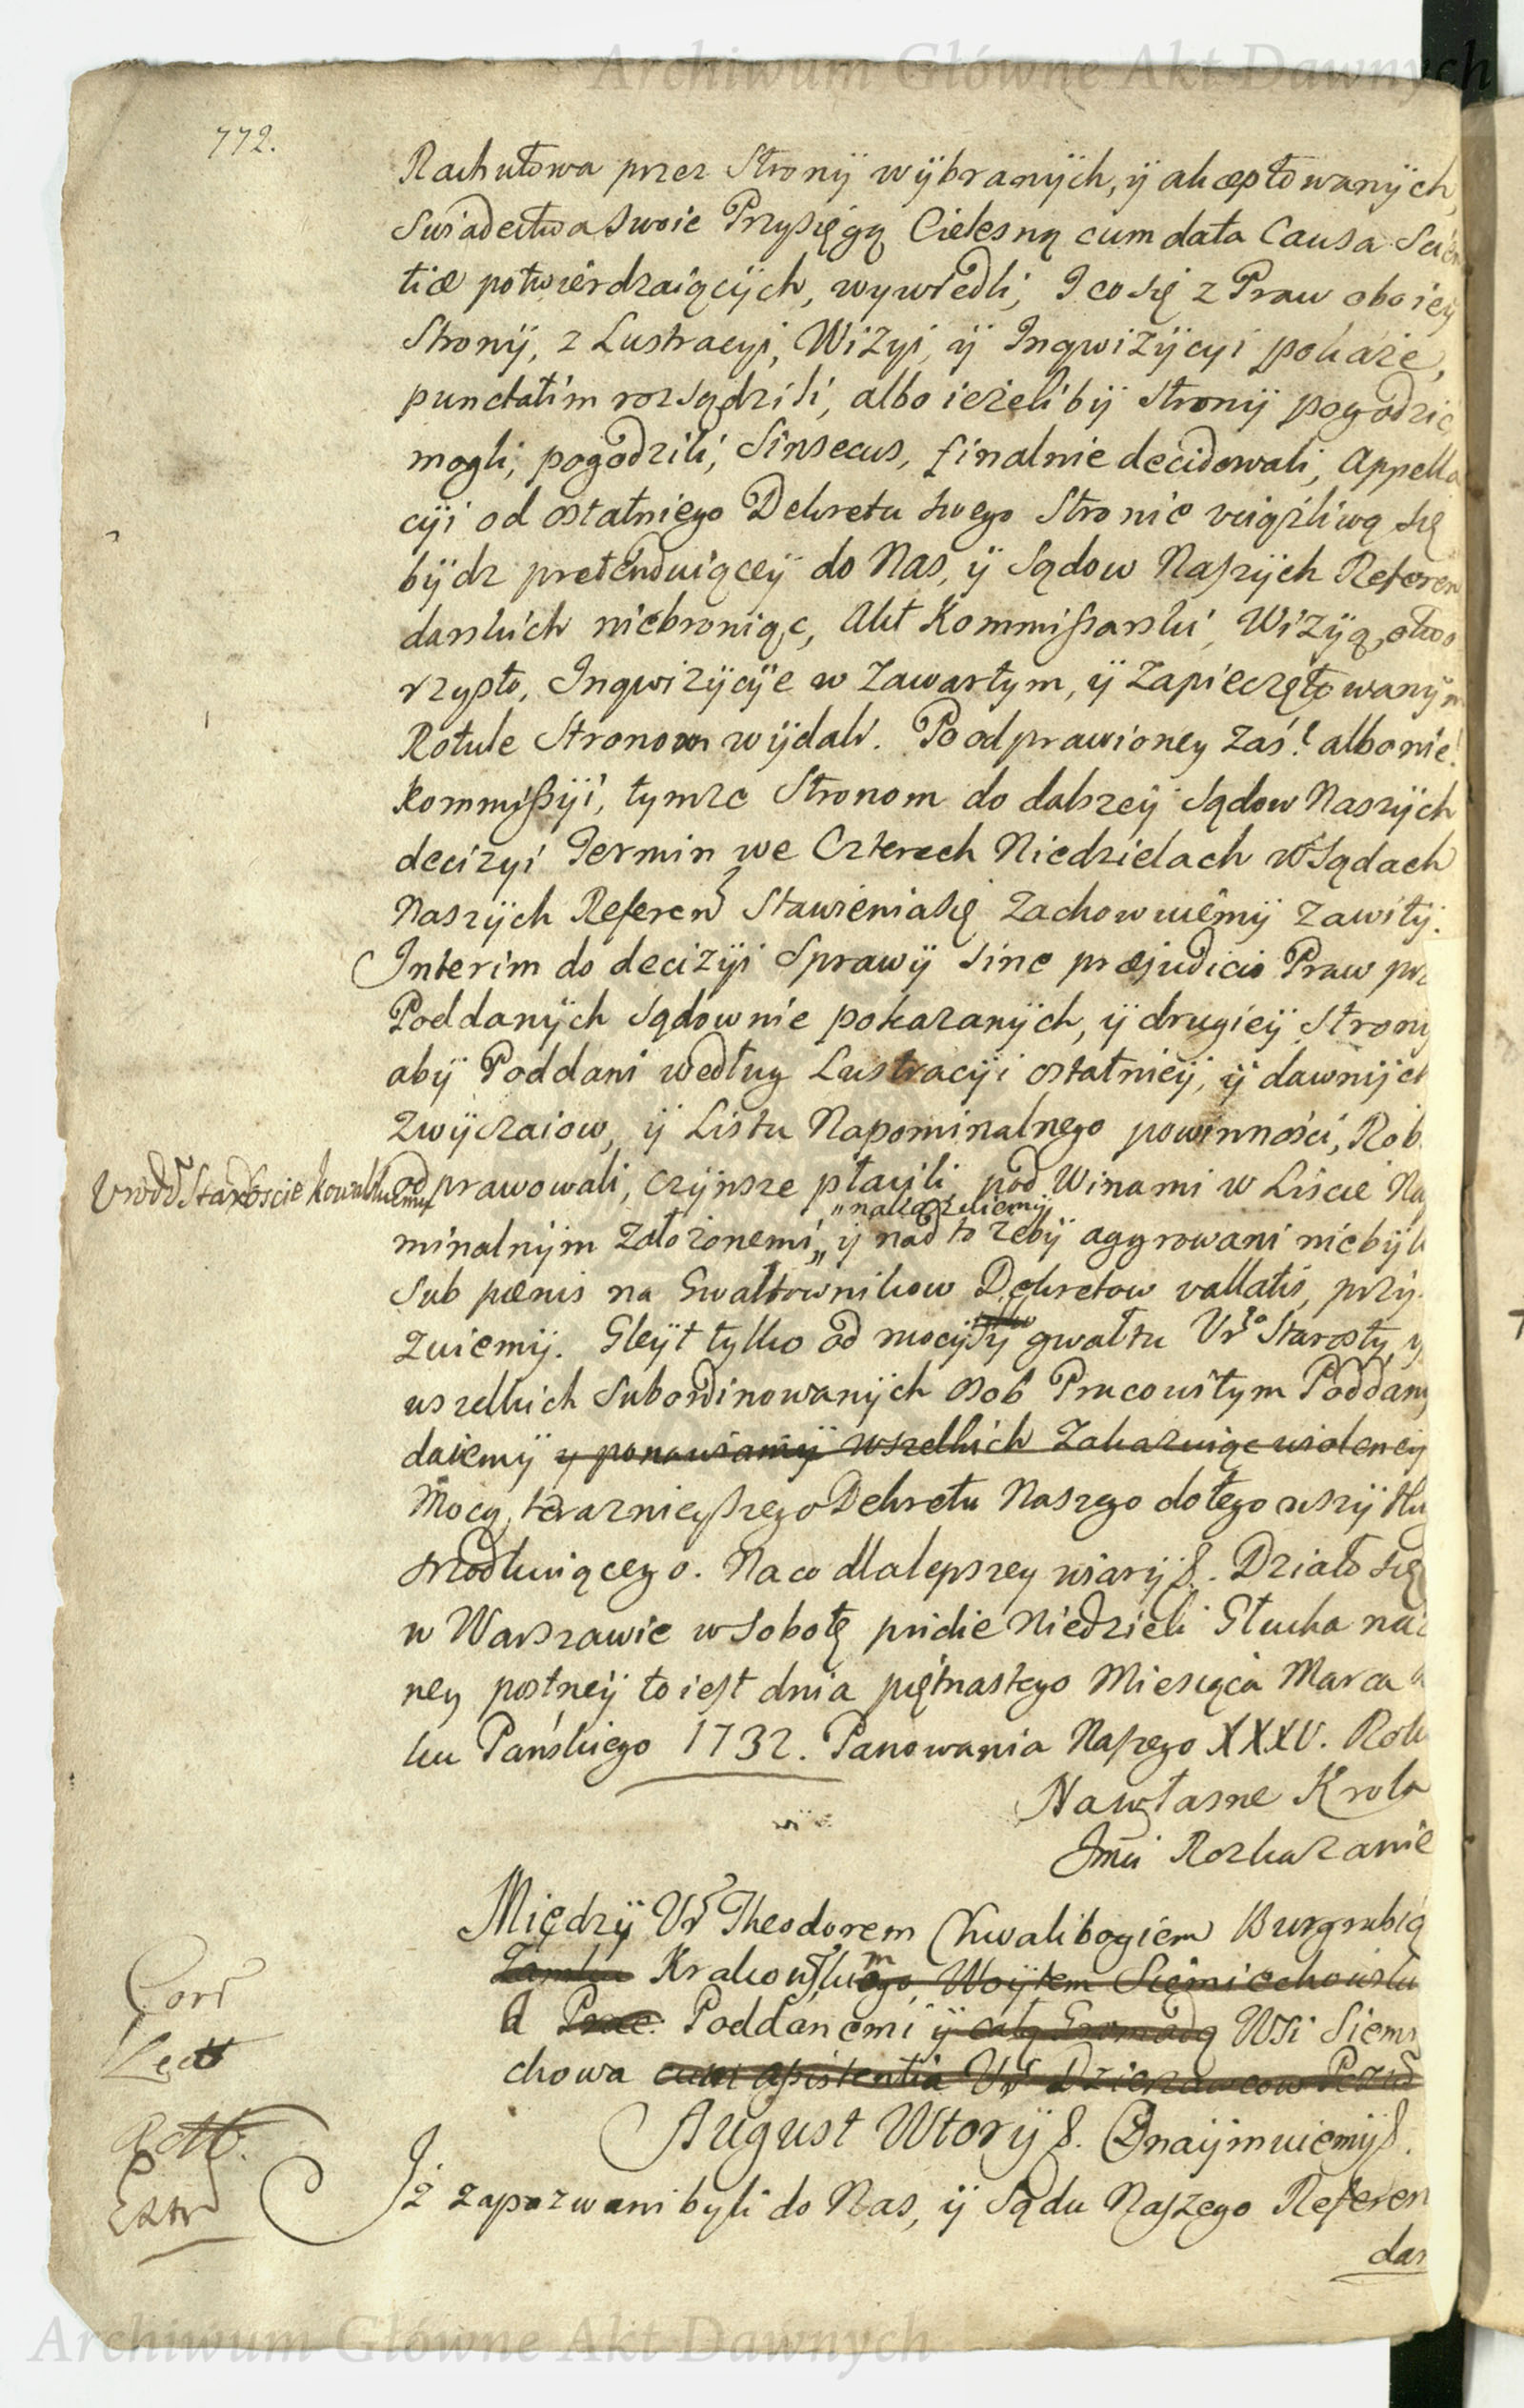 Archiwum Główne Akt Dawnych
772.
Rachutowa przez Stronÿ wÿbranÿch, ÿ akceptowanÿch,
Swiadectwa Swoie Przysięgą Cielesną cum data Causa Scien
tiæ potwierdzaiącÿch, wywiedli, I co się z Praw oboiey
Stronÿ, z Lustracyi, Wizyi, ÿ Ingwizÿcyi pokaże,
punctatim rozsądzili, albo ieżeliby Stronÿ pogodzić
mogli, pogodzili, Sinsecus, finalnie decidowali, Appella
cÿi od ostatniego Dekretu swego Stronie uciążliwą się
bÿdz pretenduiąceÿ do Nas, ÿ Sądow Naszÿch Referen
darskich niebroniąc, Akt Kommissarski, Wizÿą, otwo
rzysto, Ingwizÿcÿe w Zawartym, ÿ Zapieczętowanÿm
Rotule Stronom wÿdali. Po odprawioney zaś! albo nie!
Kommissÿi, tymże Stronom do dalszeÿ Sądow Naszÿch
decizyi Termin we Czterech Niedzielach w Sądach
Naszÿch Referen Stawienia się Zachowuiemÿ zawitÿ.
Interim do decizÿi Sprawÿ sine præjudicio Praw prz
Poddanÿch Sądownie pokazanÿch, ÿ drugieÿ Strony
abÿ Poddani według Lustracÿi ostatnieÿ, ÿ dawnÿch
Zwÿczaiow, ÿ Listu Napominalnego powinności, Rob
Urodd Staroscie Kowalskiemu
odprawowali, czÿnsze płacili pod Winami w Liscie Na
„nakazuiemÿ
minalnÿm założonemi„ ÿ nad to żebÿ aggrowani niebÿli
Sub pœnis na Gwałtownikow Dekretow vallatis, przÿ
zuiemÿ. Gleÿt tylko od mocÿ ÿ gwałtu Uro Starosty, y
wszelkich Subordinowanÿch osob Pracowitym Poddany
daiemÿ y ponawiamÿ wszelkich Zakazuiąc violencÿ
Mocą terazniejszego Dekretu Naszego do tego wszÿtku
srzodkuiącego. Na co dla lepszey wiarÿ &. Działo się
w Warszawie w Sobotę pridie Niedzieli Głucha na
ney postneÿ to iest dnia piętnastego Miesiąca Marca
ku Pańskiego 1732. Panowania Naszego XXXV. Roku
Na własne Krola
Jmći Rozkazanie
Międzÿ Ur Theodorem Chwalibogiem Burgrabią
Zamku Krakowskim, Woÿtem Siemiechowsk
A Prac. Poddanemi ÿ całą Gromadą Wsi Siemi
chowa cum assistentia Ur Dzierzawcow
August Wtorÿ &. Oznaÿmuiemÿ &.
Cord
Lect
Extr
Iż zapozwani byli do Nas, ÿ Sądu Naszego Referen
dar
Archiwum Główne Akt Dawnych